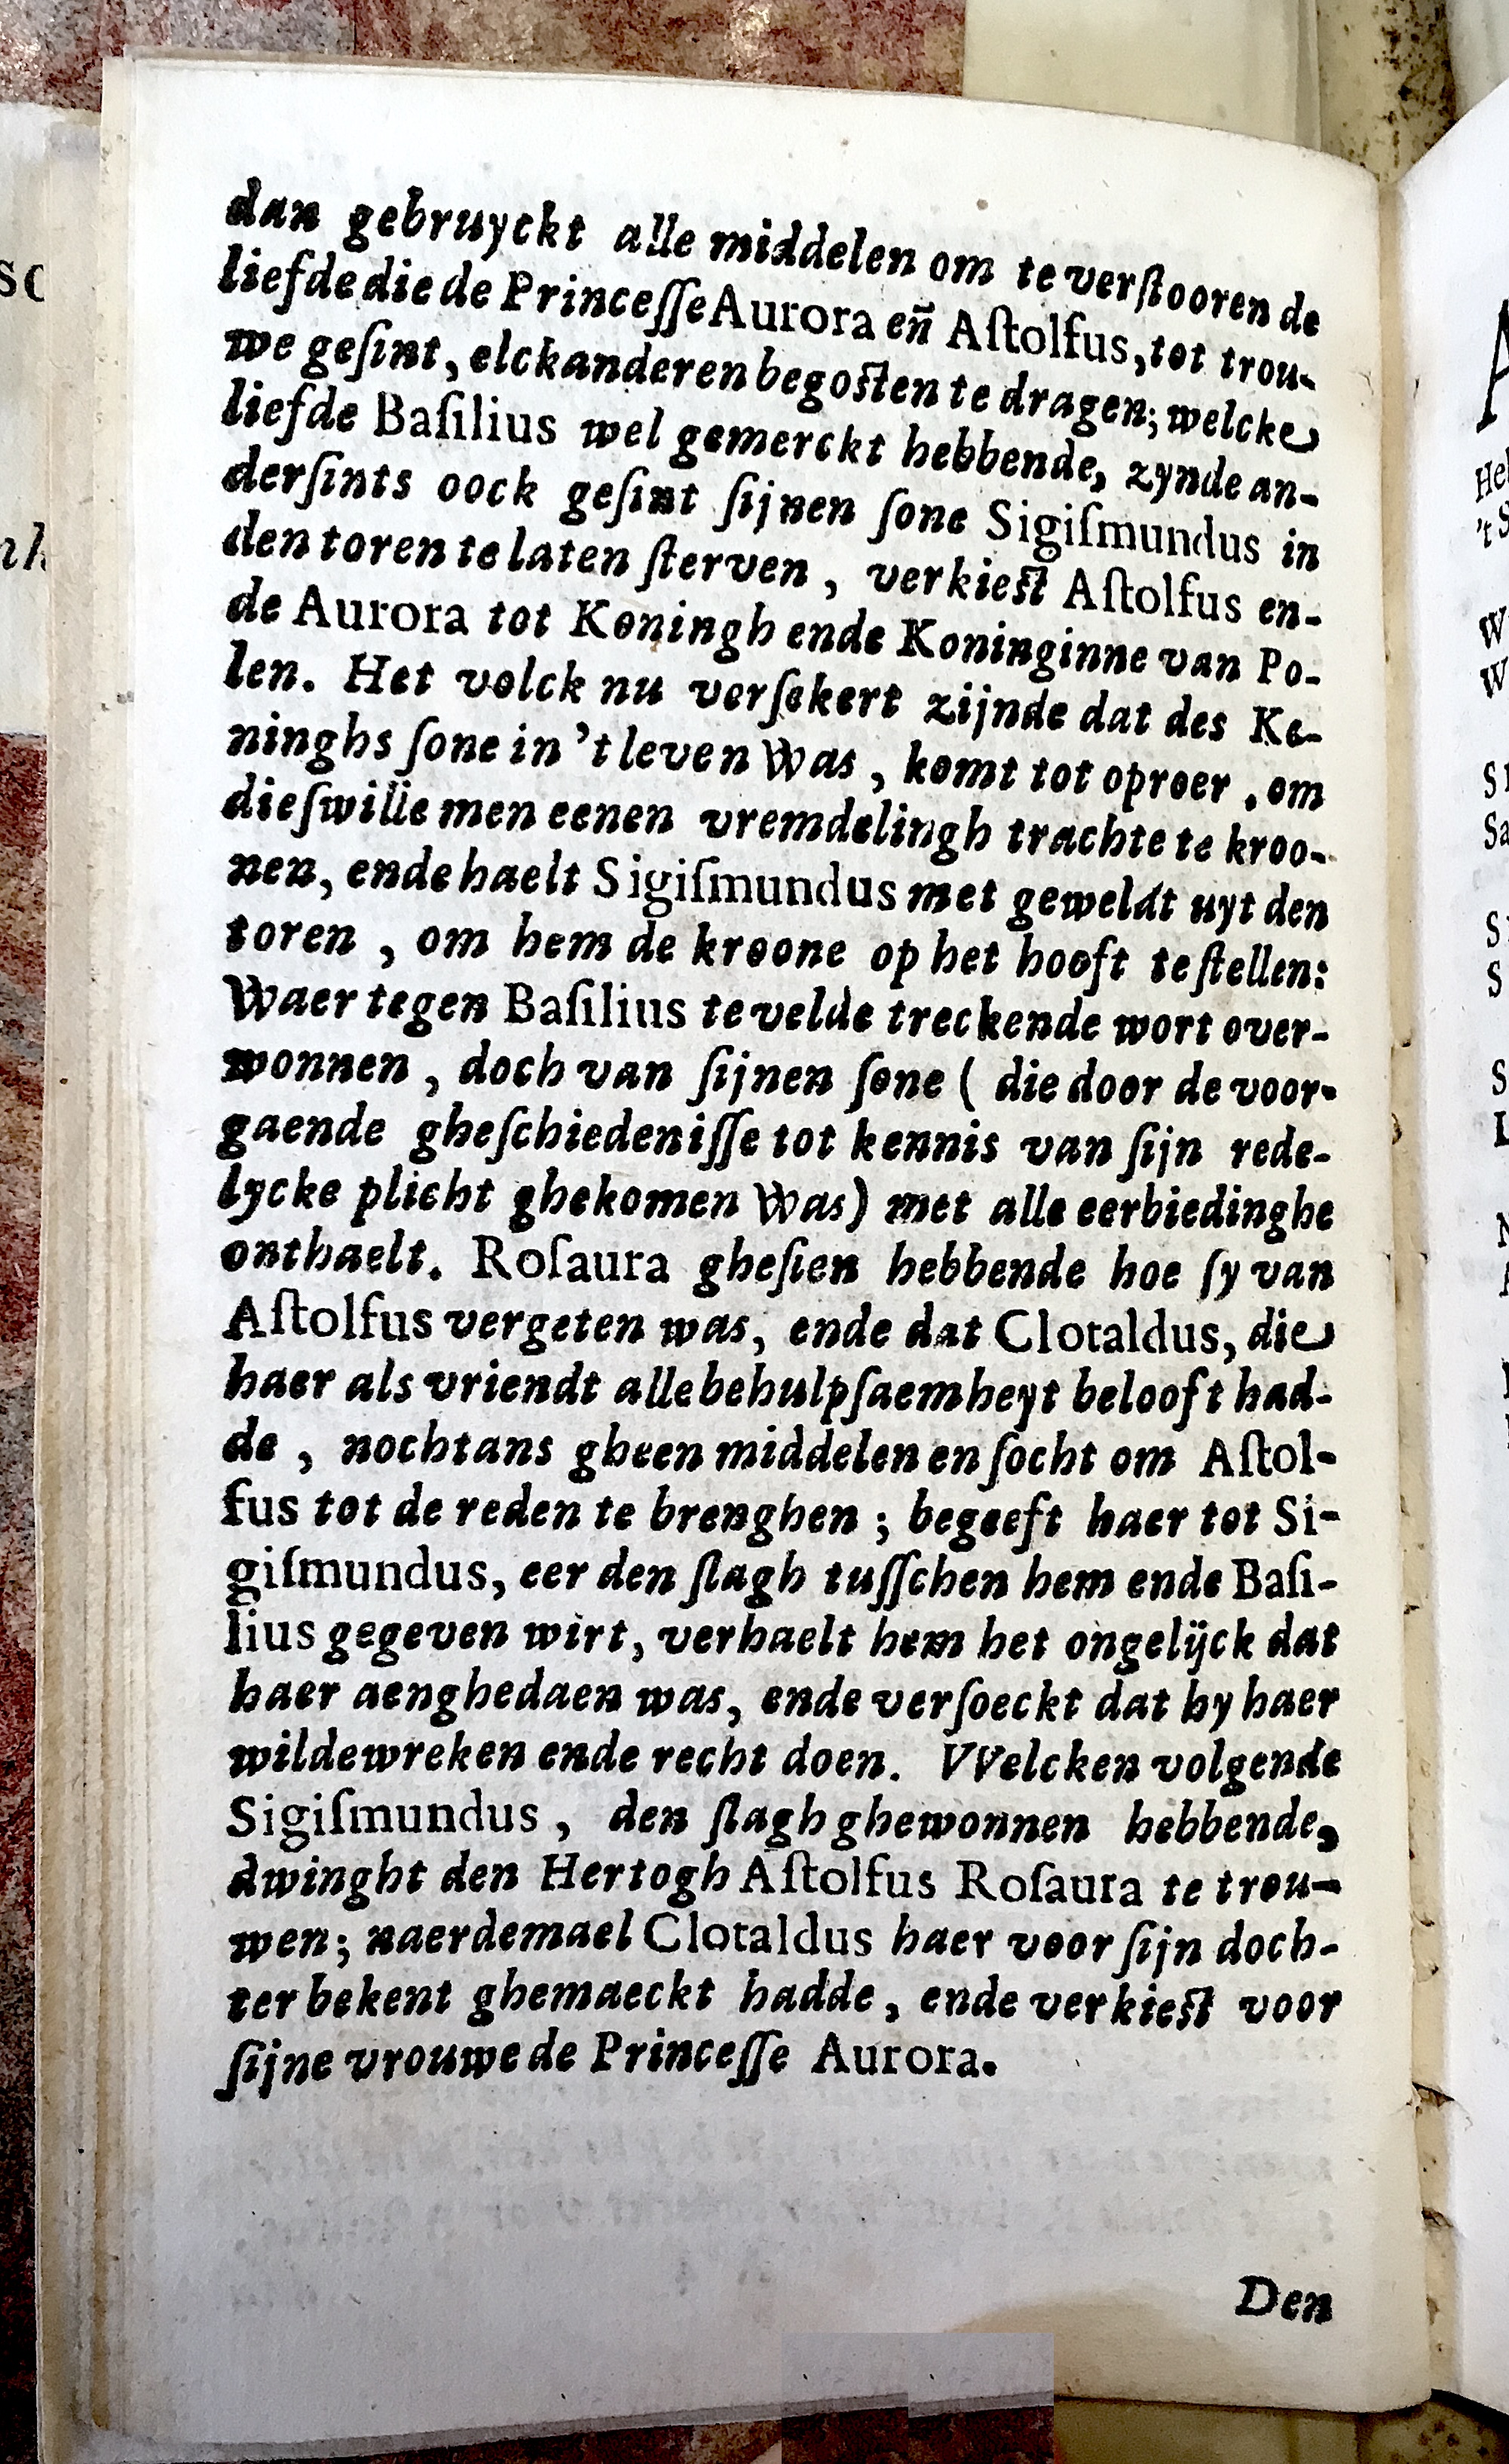 dan gebruyckt alle middelen om te verſtooren de
liefde die de Princeſſe Aurora en̄ Aſtolfus, tot trou-
we geſint, elckanderen begosten te dragen; welcke
liefde Baſilius wel gemerckt hebbende, zynde an-
derſints oock geſint ſijnen ſone Sigiſmundus in
den toren te laten ſterven, verkiest Aſtolfus en-
de Aurora tot Koningh ende Koninginne van Po-
len. Het volck nu verſekert zijnde dat des Ko-
ninghs ſone in 't leven Was, komt tot oproer, om
dieſwille men eenen vremdelingh trachte te kroo-
nen, ende haelt Sigiſmundus met geweldt uyt den
toren, om hem de kroone op het hooft te ſtellen:
Waer tegen Baſilius te velde treckende wort over-
wonnen, doch van ſijnen ſone ( die door de voor-
gaende gheſchiedeniſſe tot kennis van ſijn rede-
lycke plicht ghekomen Was) met alle eerbiedinghe
onthaelt. Roſaura gheſien hebbende hoe ſy van
Aſtolfus vergeten was, ende dat Clotaldus, die
haer als vriendt alle behulpſaemheyt belooft had-
de, nochtans gheen middelen en ſocht om Aſtol-
fus tot de reden te brenghen; begeeft haer tot Si-
giſmundus, eer den ſlagh tuſſchen hem ende Baſi-
lius gegeven wirt, verhaelt hem het ongelijck dat
haer aenghedaen was, ende verſoeckt dat hy haer
wilde wreken ende recht doen. VVelcken volgende
Sigiſmundus, den ſlagh ghewonnen hebbende,
dwinght den Hertogh Aſtolfus Roſaura te trou-
wen; naerdemael Clotaldus haer voor ſijn doch-
ter bekent ghemaeckt hadde, ende verkiest voor
ſijne vrouwe de Princeſſe Aurora.
Den